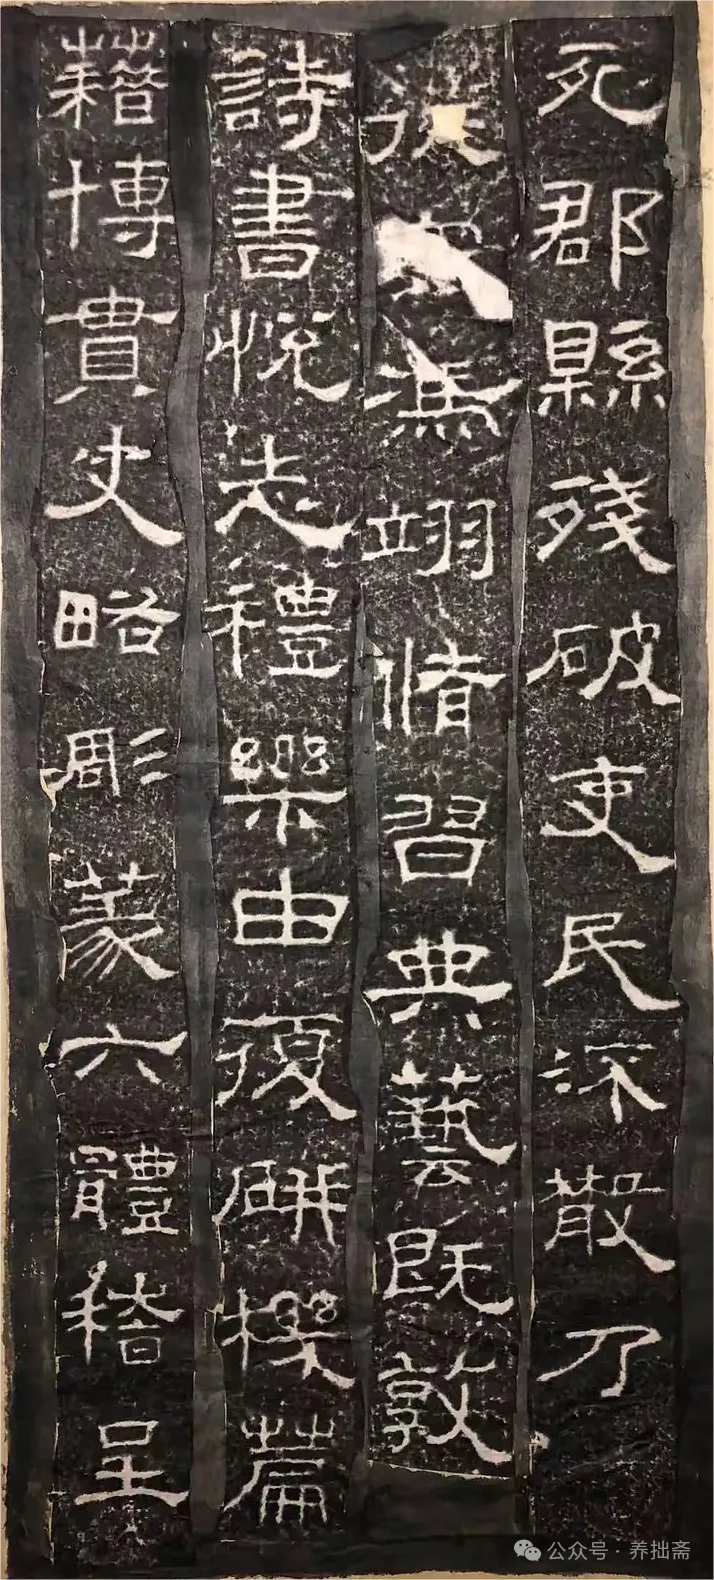 死郡縣殘破吏民流散乃
徙馮翊脩習典藝既敦
詩書悅志禮樂由復研機篇
藉博貫史略彫篆六體稽呈
公众号·养拙斋